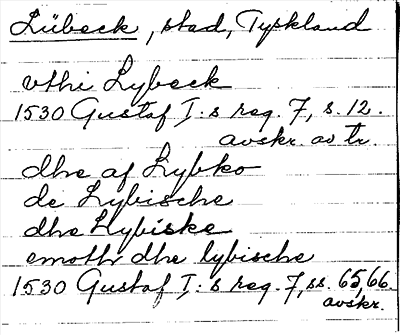 Lübeck, stad, Tyskland
vthi Lybeck
1530 Gustaf I:s reg. 7, s. 12.
avskr. av tr.
dhe af Lybko
de Lybische
dhe Lybiske
emoth dhe lybische
1530 Gustaf I:s reg. 7, ss. 65, 66.
avskr.